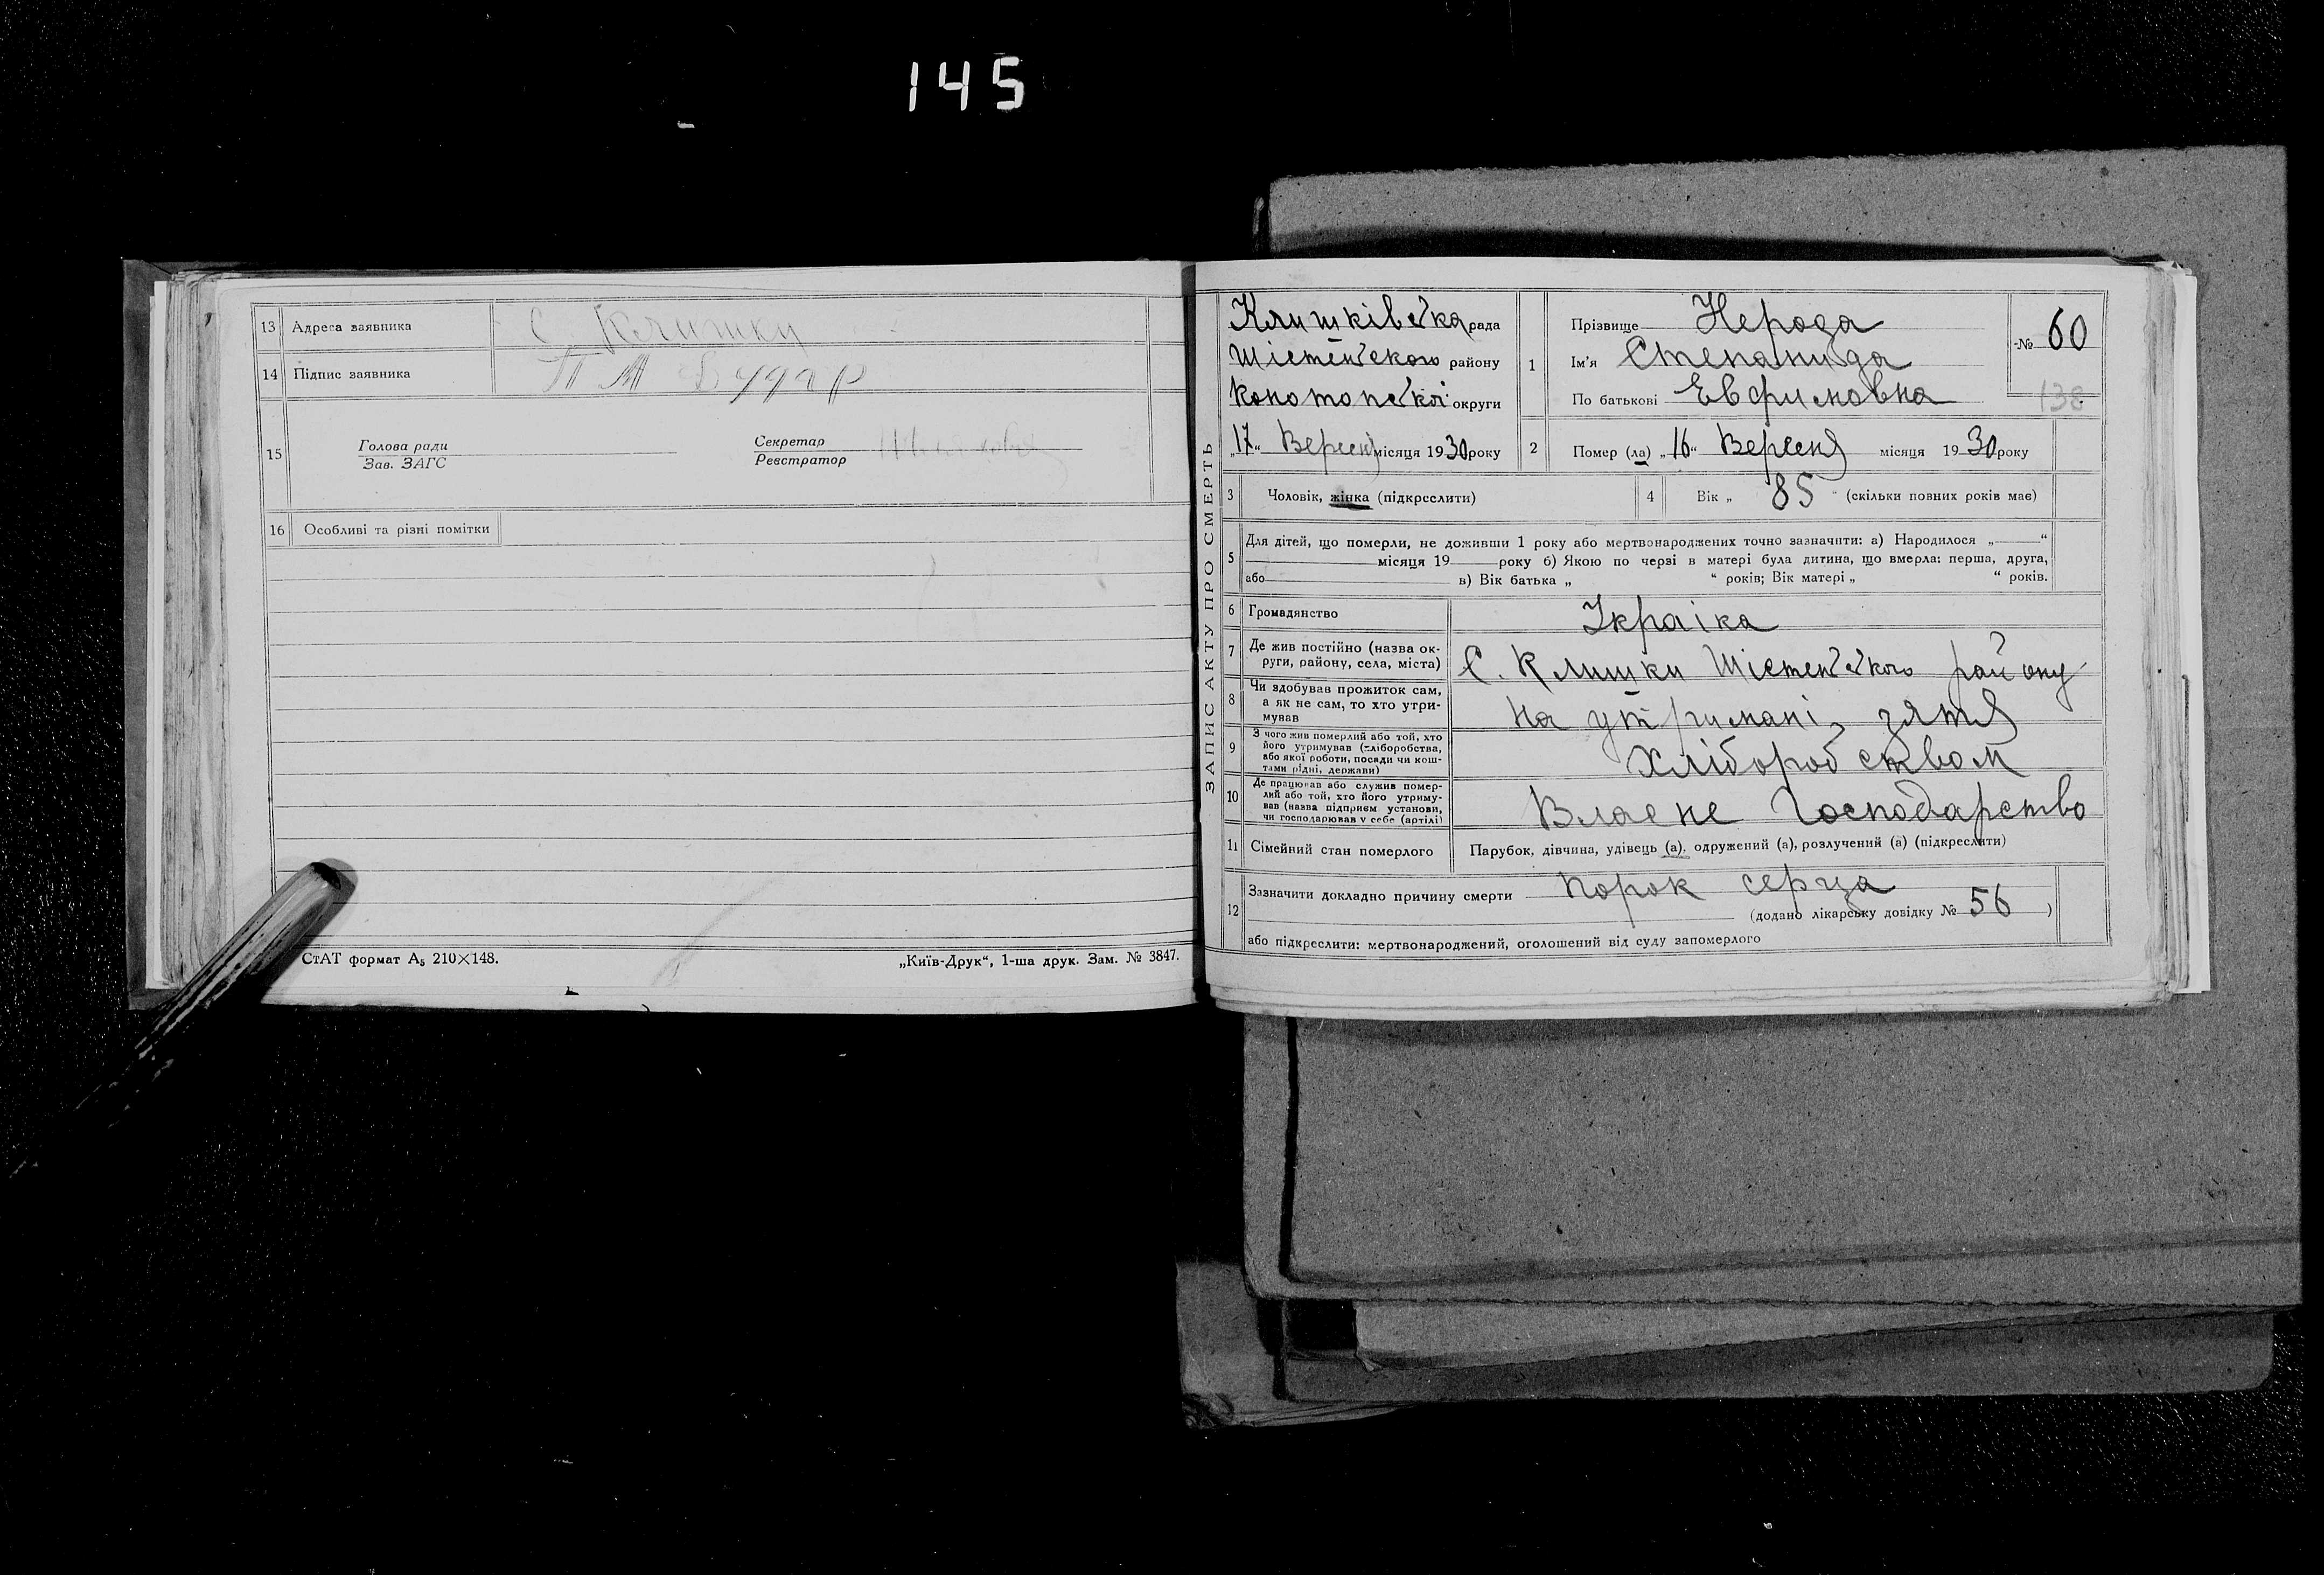 145
13 Адреса заявника С Клишки
14 Підпис заявника
15 Голова ради Секретар
Зав. ЗАГС Реєстратор
16 Особливі та різні помітки
СтАТ формат А₅ 210×148. „Київ-Друк“, 1-ша друк. Зам. № 3847.
ЗАПИС АКТУ ПРО СМЕРТЬ
Клишківська рада
Шістенського району
Конотопської округи
„17“ Вересня місяця 1930 року
1 Прізвище Нерода
Ім'я Степанида
По батькові Евфимовна
№ 60
138
2 Помер (ла) „16“ Вересня місяця 1930 року
3 Чоловік, жінка (підкреслити)
4 Вік „ 85 “ (скільки повних років має)
5 Для дітей, що померли, не доживши 1 року або мертвонароджених точно зазначити: а) Народилося „ “
місяця 19 року б) Якою по черзі в матері була дитина, що вмерла: перша, друга,
або в) Вік батька „ “ років; Вік матері „ “ років.
6 Громадянство Україка
7 Де жив постійно (назва ок-
руги, району, села, міста) С. Клишки Шістенського району
8 Чи здобував прожиток сам,
а як не сам, то хто утри-
мував На утримані, зятя
9 З чого жив померлий або той, хто
його утримував (хліборобства,
або якої роботи, посади чи кош-
тами рідні, держави) Хліборобством
10 Де працював або служив помер-
лий або той, хто його утриму-
вав (назва підприєм установи,
чи господарював у себе (артілі) Власне Господарство
11 Сімейний стан померлого Парубок, дівчина, удівець (а), одружений (а), розлучений (а) (підкреслити)
12 Зазначити докладно причину смерти порок серца
(додано лікарську довідку № 56 )
або підкреслити: мертвонароджений, оголошений від суду запомерлого